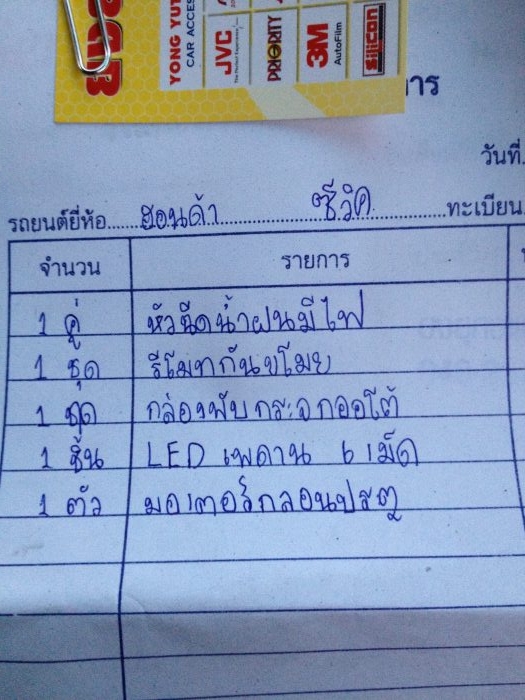 YONG YUT
CAR ACCES
JVC
PRIORITY
3M
AutoFilm
Silicon
การ
วันที่
รถยนต์ยี่ห้อ ฮอนด้า ซีวิค ทะเบียน
จำนวน รายการ
1 คู่ หัวฉีดน้ำฝนมีไฟ
1 ชุด รีโมทกันขโมย
1 ชุด กล่องพับกระจกออโต้
1 ชิ้น LED เพดาน 6 เม็ด
1 ตัว มอเตอร์กลอนประตู